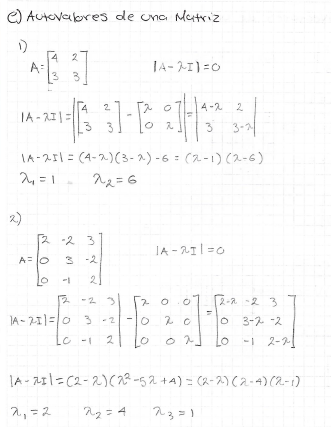 C) Autovalores de una Matriz
1)
A = [4 2; 3 3]   |A - λI| = 0
|A - λI| = |[4 2; 3 3] - [λ 0; 0 λ]| = |4-λ 2; 3 3-λ|
|A - λI| = (4-λ)(3-λ) - 6 = (λ-1)(λ-6)
λ₁ = 1   λ₂ = 6
2)
A = [2 -2 3; 0 3 -2; 0 -1 2]   |A - λI| = 0
|A - λI| = [2 -2 3; 0 3 -2; 0 -1 2] - [λ 0 0; 0 λ 0; 0 0 λ] = [2-λ -2 3; 0 3-λ -2; 0 -1 2-λ]
|A - λI| = (2-λ)(λ² - 5λ + 4) = (2-λ)(λ-4)(λ-1)
λ₁ = 2   λ₂ = 4   λ₃ = 1